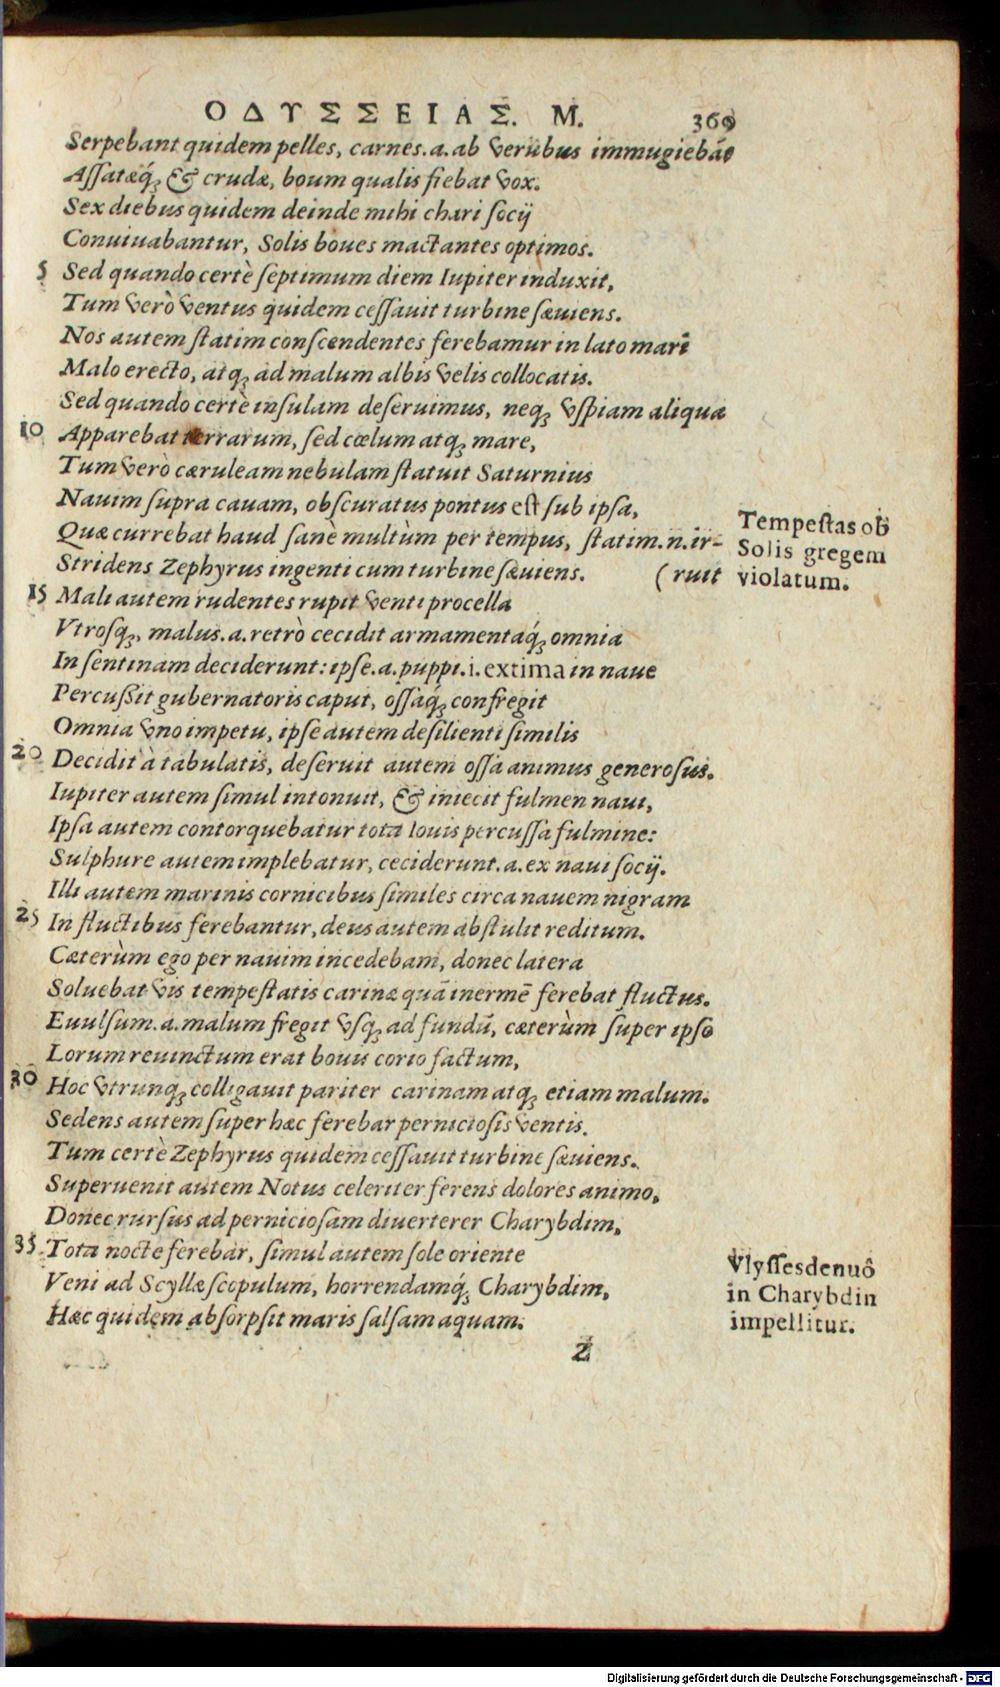 ΟΔΥΣΣΕΙΑΣ. Μ. 369
Serpebant quidem pelles, carnes.a.ab verubus immugiebāt
Assatæq́;, & crudæ, boum qualis fiebat vox.
Sex diebus quidem deinde mihi chari socij
Conuiuabantur, Solis boues mactantes optimos.
5 Sed quando certè septimum diem Iupiter induxit,
Tum verò ventus quidem cessauit turbine sæuiens.
Nos autem statim conscendentes ferebamur in lato mari
Malo erecto, atq; ad malum albis velis collocatis.
Sed quando certè insulam deseruimus, neq; vspiam aliqua
10 Apparebat terrarum, sed cœlum atq; mare,
Tum verò cæruleam nebulam statuit Saturnius
Nauim supra cauam, obscuratus pontus est sub ipsa,
Quæ currebat haud sanè multùm per tempus, statim.n.ir-
Stridens Zephyrus ingenti cum turbine sæuiens. (ruit
15 Mali autem rudentes rupit venti procella
Vtrosq;, malus.a.retrò cecidit armamentaq́; omnia
In sentinam deciderunt: ipse.a.puppi.i.extima in naue
Percußit gubernatoris caput, ossaq́; confregit
Omnia vno impetu, ipse autem desilienti similis
20 Decidit à tabulatis, deseruit autem ossa animus generosus.
Iupiter autem simul intonuit, & iniecit fulmen naui,
Ipsa autem contorquebatur tota Iouis percussa fulmine:
Sulphure autem implebatur, ceciderunt.a.ex naui socij.
Illi autem marinis cornicibus similes circa nauem nigram
25 In fluctibus ferebantur, deus autem abstulit reditum.
Cæterùm ego per nauim incedebam, donec latera
Soluebat vis tempestatis carinæ quā inermē ferebat fluctus.
Euulsum.a.malum fregit vsq; ad fundū, cæterùm super ipso
Lorum reuinctum erat bouu corio factum,
30 Hoc vtrunq; colligauit pariter carinam atq; etiam malum.
Sedens autem super hæc ferebar perniciosis ventis.
Tum certè Zephyrus quidem cessauit turbine sæuiens.
Superuenit autem Notus celeriter ferens dolores animo,
Donec rursus ad perniciosam diuerterer Charybdim,
35 Tota nocte ferebar, simul autem sole oriente
Veni ad Scyllæ scopulum, horrendamq́; Charybdim,
Hæc quidem absorpsit maris salsam aquam.
Z
Tempestas ob
Solis gregem
violatum.
Vlysses denuô
in Charybdin
impellitur.
Digitalisierung gefördert durch die Deutsche Forschungsgemeinschaft - DFG